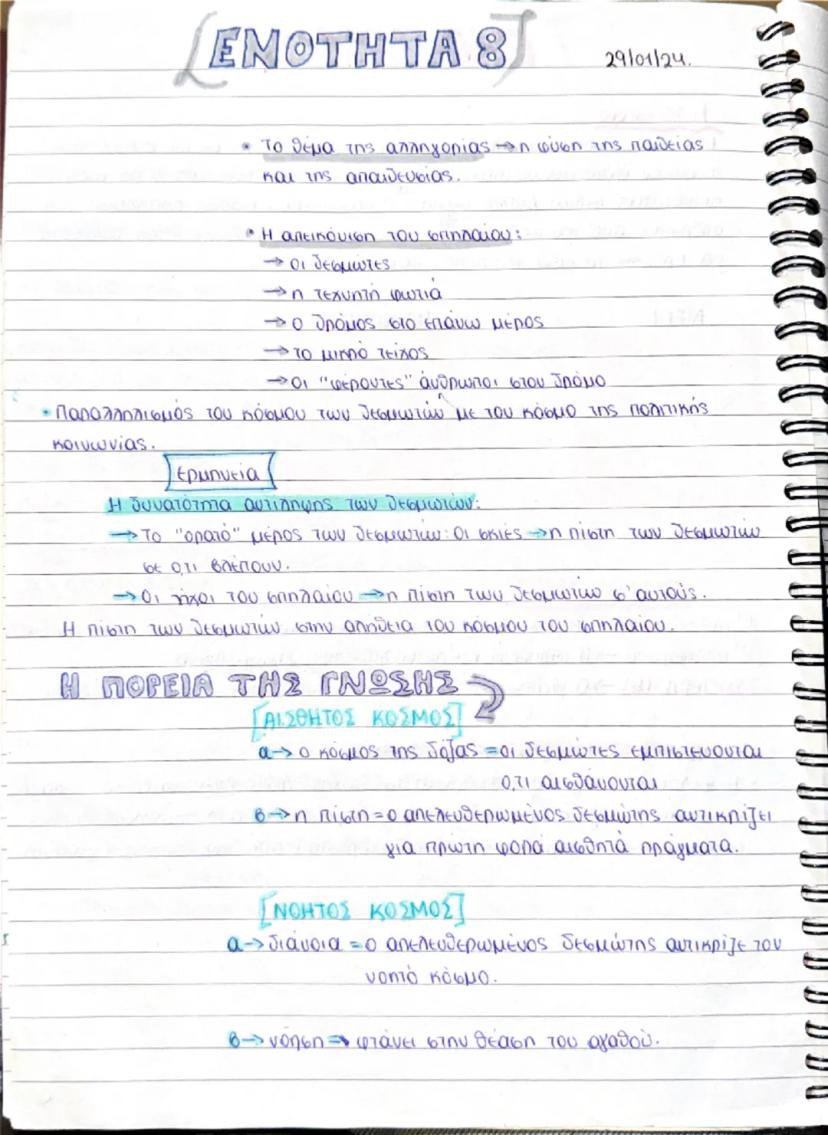 [ΕΝΟΤΗΤΑ 8]
29/01/24.
• Το θέμα της αλληγορίας → η φύση της παιδείας
και της απαιδευσίας.
• Η απεικόνιση του σπηλαίου:
→ οι δεσμώτες
→ η τεχνητή φωτιά
→ ο δρόμος στο επάνω μέρος
→ το μικρό τείχος
→ οι "φέροντες" άνθρωποι στον δρόμο
• Παραλληλισμός του κόσμου των δεσμωτών με τον κόσμο της πολιτικής
κοινωνίας.
Ερμηνεία
Η δυνατότητα αντίληψης των δεσμωτών:
→ Το "ορατό" μέρος των δεσμωτών: Οι σκιές → η πίστη των δεσμωτών
σε ό,τι βλέπουν.
→ Οι ήχοι του σπηλαίου → η πίστη των δεσμωτών σ' αυτούς.
Η πίστη των δεσμωτών στην αλήθεια του κόσμου του σπηλαίου.
Η ΠΟΡΕΙΑ ΤΗΣ ΓΝΩΣΗΣ
[ΑΙΣΘΗΤΟΣ ΚΟΣΜΟΣ]
α → ο κόσμος της δόξας = οι δεσμώτες εμπιστεύονται
ό,τι αισθάνονται
β → η πίστη = ο απελευθερωμένος δεσμώτης αντικρίζει
για πρώτη φορά αισθητά πράγματα.
[ΝΟΗΤΟΣ ΚΟΣΜΟΣ]
α → διάνοια = ο απελευθερωμένος δεσμώτης αντικρίζε τον
νοητό κόσμο.
β → νόηση → φτάνει στην θέαση του αγαθού.